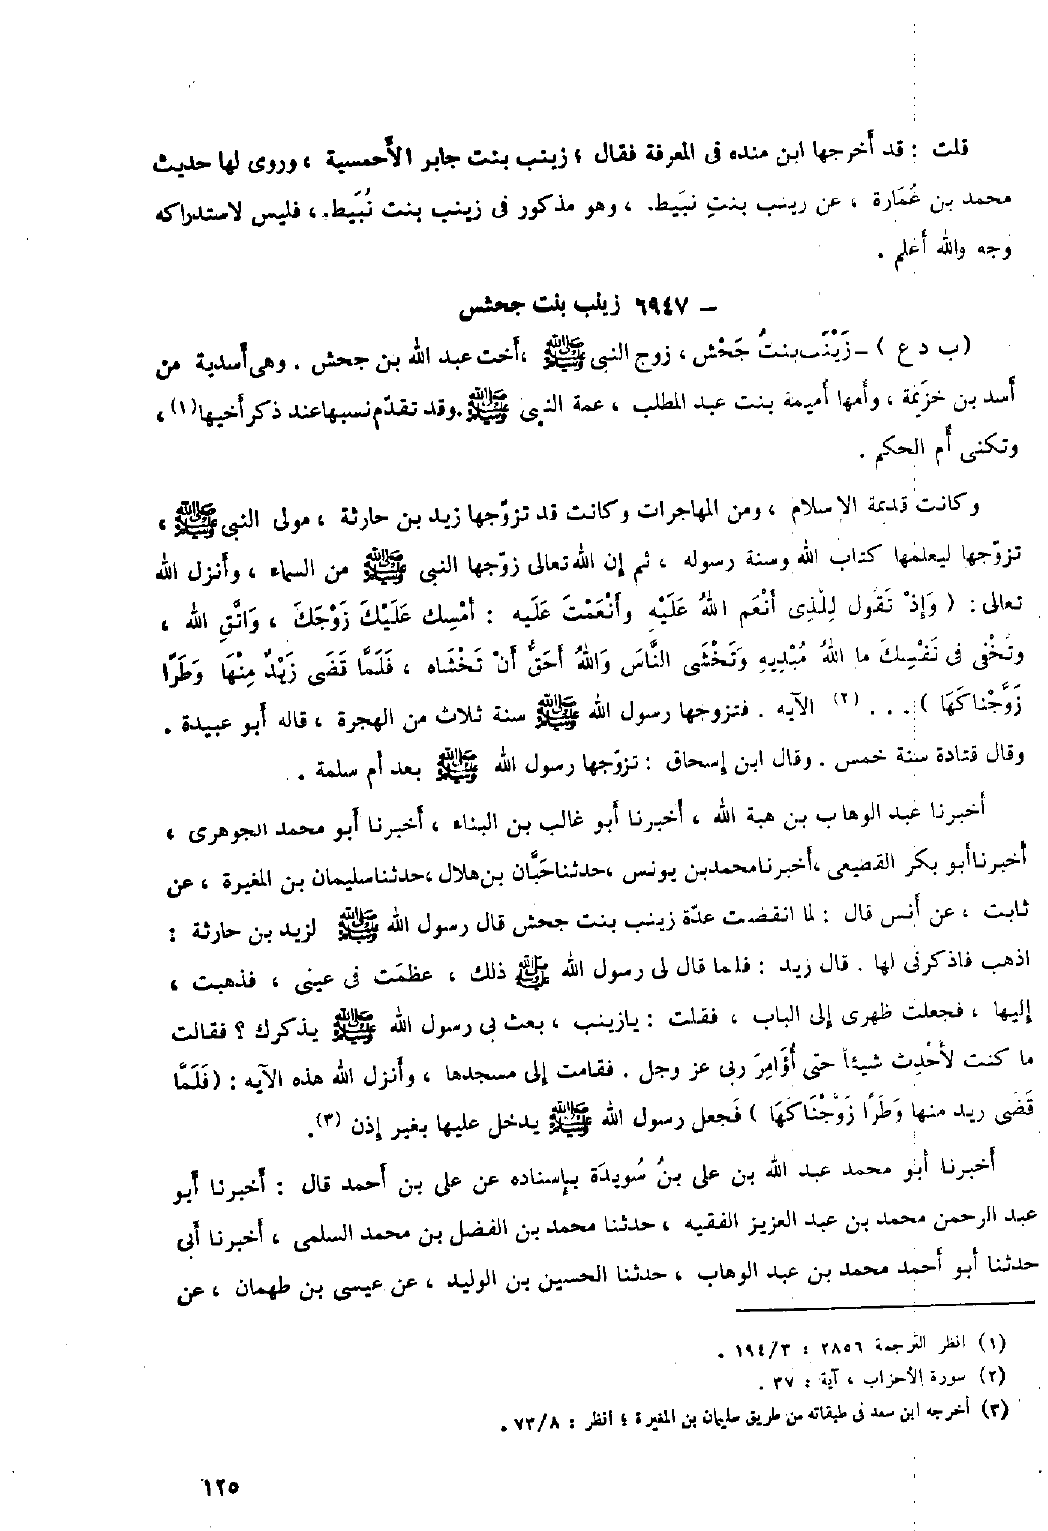 قلت : قد أخرجها ابن منده فى المعرفة فقال ؛ زينب بنت جابر الأحمسية ، وروى لها حديث
محمد بن عُمَارة ، عن زينب بنتِ نبَيط. ، وهو مذكور فى زينب بنت نُبَيط. ، فليس لاستدراكه
وجه والله أعلم .
٦٩٤٧ – زينب بنت جحش
(ب د ع) – زَيْنَب بنتُ جَحْش ، زوج النبى ﷺ ، أخت عبد الله بن جحش . وهى أسدية من
أسد بن خزيمة ، وأمها أميمة بنت عبد المطلب ، عمة النبى ﷺ . وقد تقدّم نسبها عند ذكر أخيها (١) ،
وتكنى أم الحكم .
وكانت قديمة الإسلام ، ومن المهاجرات وكانت قد تزوّجها زيد بن حارثة ، مولى النبى ﷺ ،
تزوّجها ليعلمها كتاب الله وسنة رسوله ، ثم إن الله تعالى زوّجها النبى ﷺ من السماء ، وأنزل الله
تعالى : ( وَإِذْ تَقُول لِلَّذِى أنْعَم اللهُ عَلَيْه وأنْعَمْتَ عَلَيه : أمْسِك عَلَيْكَ زَوْجَكَ ، وَاتَّقِ الله ،
وتُخْفى فى نَفْسِكَ ما اللهُ مُبْدِيهِ وَتَخْشَى النَّاسَ وَاللهُ أحَقُّ أنْ تَخْشَاه ، فَلَمَّا قَضَى زَيْدٌ مِنْهَا وَطَرًا
زَوَّجْنَاكَهَا ) . . . (٢) الآيه . فتزوجها رسول الله ﷺ سنة ثلاث من الهجرة ، قاله أبو عبيدة .
وقال قتادة سنة خمس . وقال ابن إسحاق : تزوّجها رسول الله ﷺ بعد أم سلمة .
أخبرنا عبد الوهاب بن هبة الله ، أخبرنا أبو غالب بن البناء ، أخبرنا أبو محمد الجوهرى ،
أخبرنا أبو بكر القصيعى ، أخبرنا محمد بن يونس ، حدثنا حَبَّان بن هلال ، حدثنا سليمان بن المغيرة ، عن
ثابت ، عن أنس قال : لما انقضت عدّة زينب بنت جحش قال رسول الله ﷺ لزيد بن حارثة :
اذهب فاذكرنى لها . قال زيد : فلما قال لى رسول الله ﷺ ذلك ، عظمَت فى عينى ، فذهبت ،
إليها ، فجعلت ظهرى إلى الباب ، فقلت : يا زينب ، بعث بى رسول الله ﷺ يذكرك ؟ فقالت
ما كنت لأحْدِث شيئاً حتى أُؤَامِرَ ربى عز وجل . فقامت إلى مسجدها ، وأنزل الله هذه الآيه : (فَلَمَّا
قَضَى زيد منها وَطَرًا زَوَّجْنَاكَهَا ) فَجعل رسول الله ﷺ يدخل عليها بغير إذن (٣) .
أخبرنا أبو محمد عبد الله بن على بنُ سُويدَة بإسناده عن على بن أحمد قال : أخبرنا أبو
عبد الرحمن محمد بن عبد العزيز الفقيه ، حدثنا محمد بن الفضل بن محمد السلمى ، أخبرنا أبى
حدثنا أبو أحمد محمد بن عبد الوهاب ، حدثنا الحسين بن الوليد ، عن عيسى بن طهمان ، عن
(١) انظر الترجمة ٢٨٥٦ : ١٩٤/٣ .
(٢) سورة الأحزاب ، آية : ٣٧ .
(٣) أخرجه ابن سعد فى طبقاته من طريق سليمان بن المغيرة ؛ انظر : ٧٣/٨ .
١٢٥